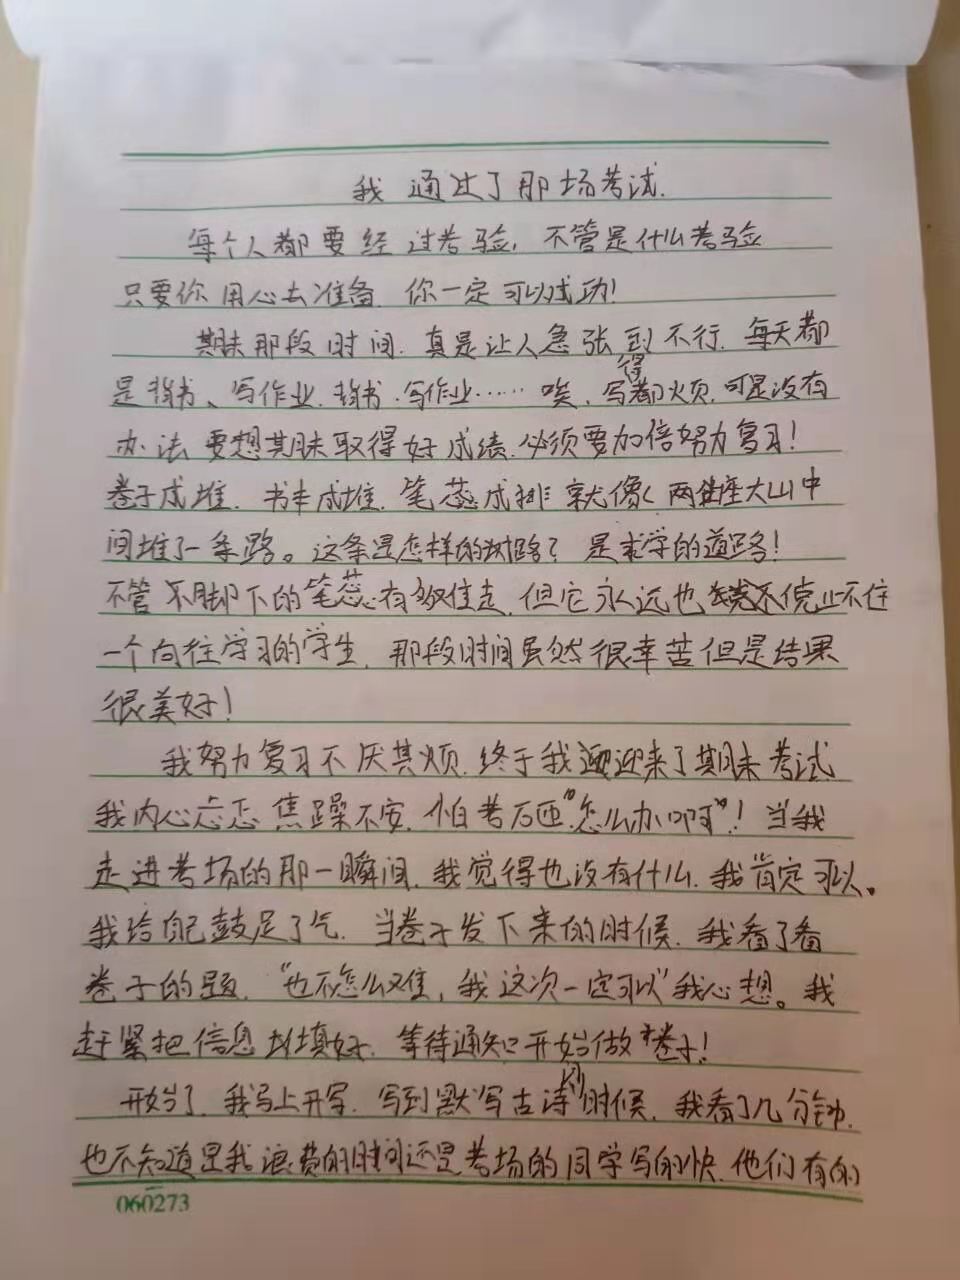 我通过了那场考试.
每个人都要经过考验,不管是什么考验
只要你用心去准备.你一定可以成功!
期末那段时间.真是让人急张到不行.每天都
是背书、写作业.背书.写作业……唉、写得都火烦.可是没有
办法要想期末取得好成绩.必须要加倍努力复习!
卷子成堆.书本成堆.笔蕊成排就像两座大山中
间堆了一条路。这条是怎样的路?是求学的道路!
不管脚下的笔蕊有多难走.但它永远也止不住
一个向往学习的学生.那段时间虽然很幸苦但是结果
很美好!
我努力复习不厌其烦.终于我迎来了期末考试
我内心忐忑焦躁不安.怕考砸“怎么办啊”!当我
走进考场的那一瞬间.我觉得也没有什么.我肯定可以。
我给自己鼓足了气.当卷子发下来的时候.我看了看
卷子的题.“也不怎么难,我这次一定可以”我心想。我
赶紧把信息填好.等待通知开始做卷子!
开始了.我马上开写.写到默写古诗的时候.我看了几分钟.
也不知道是我浪费的时间还是考场的同学写的快.他们有的
060273